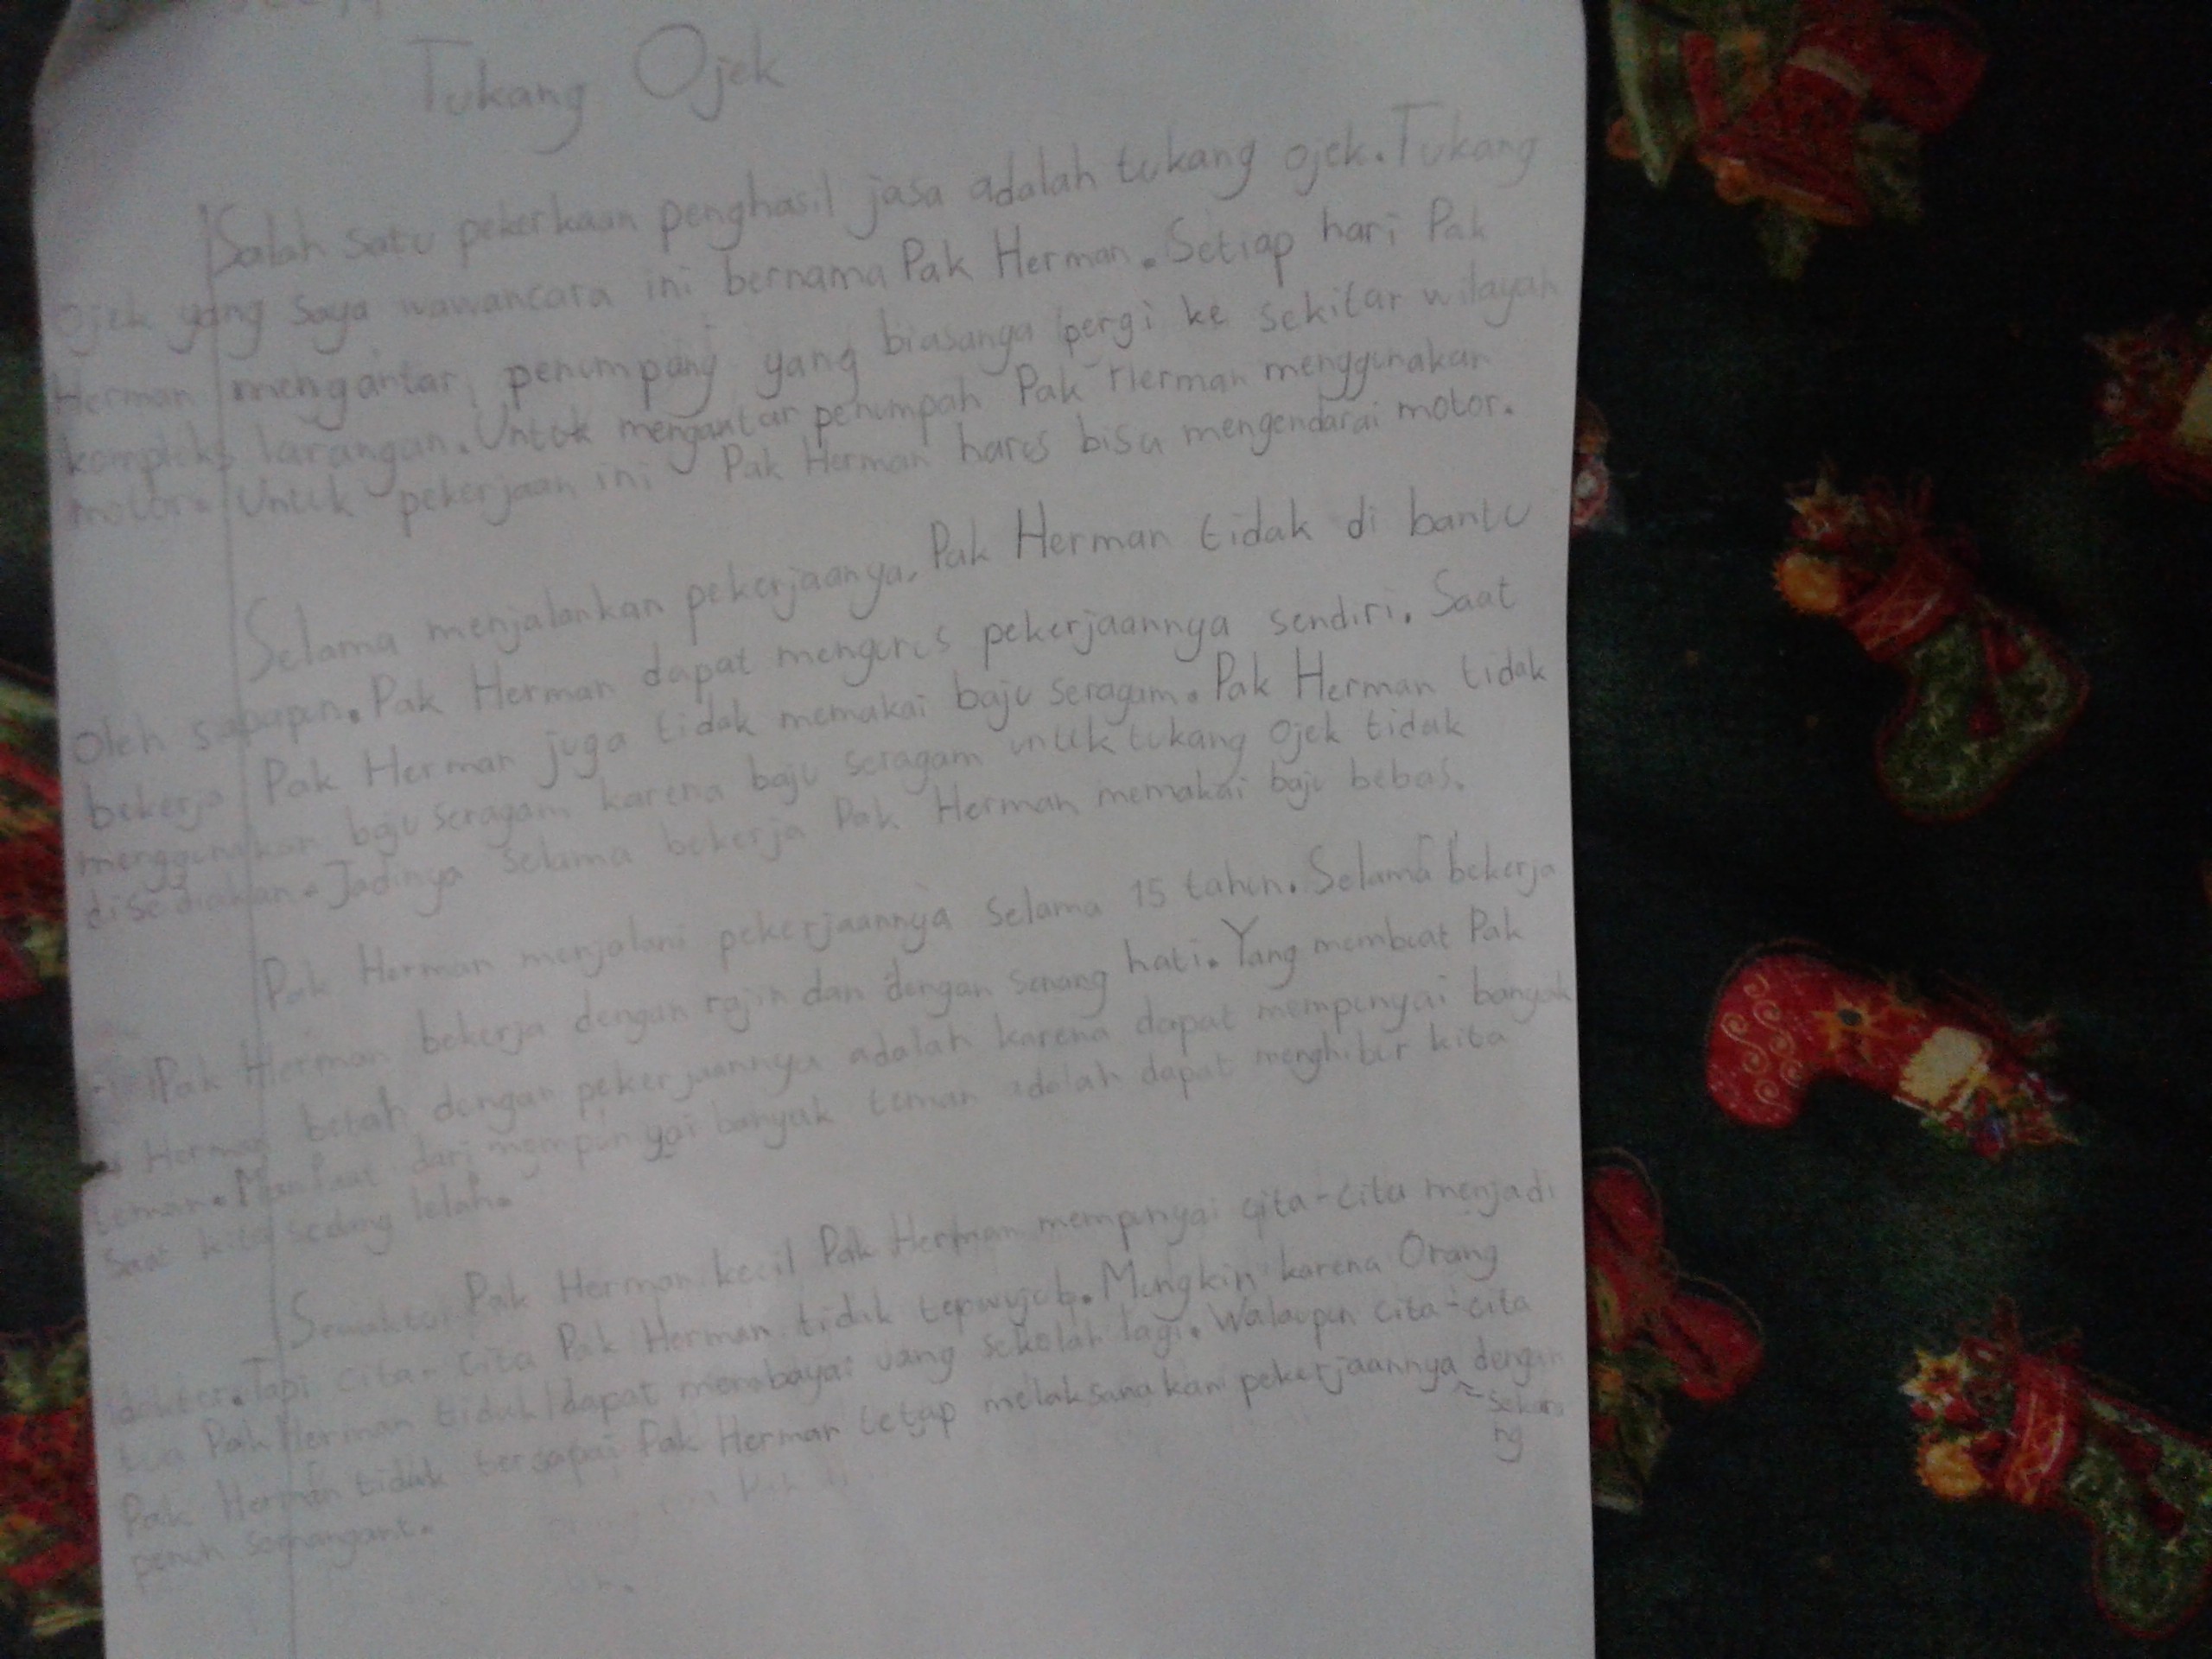 Tukang Ojek
Salah satu pekerkaan penghasil jasa adalah tukang ojek. Tukang
Ojek yang saya wawancara ini bernama Pak Herman. Setiap hari Pak
Herman mengantar penumpang yang biasanya pergi ke sekitar wilayah
kompleks larangan. Untuk mengantar penumpah Pak Herman menggunakan
motor. Untuk pekerjaan ini Pak Herman harus bisa mengendarai motor.
Selama menjalankan pekerjaanya, Pak Herman tidak di bantu
Oleh sapapun. Pak Herman dapat mengurus pekerjaannya sendiri. Saat
bekerja Pak Herman juga tidak memakai baju seragam. Pak Herman tidak
menggunakan baju seragam karena baju seragam untuk tukang Ojek tidak
disediakan. Jadinya selama bekerja Pak Herman memakai baju bebas.
Pak Herman menjalani pekerjaannya selama 15 tahun. Selama bekerja
Pak Herman bekerja dengan rajin dan dengan senang hati. Yang membuat Pak
Herman betah dengan pekerjaannya adalah karena dapat mempunyai banyak
teman. Manfaat dari mempunyai banyak teman adalah dapat menghibur kita
Saat kita sedang lelah.
Sewaktu Pak Herman kecil Pak Herman mempunyai cita-cita menjadi
dokter. Tapi cita-cita Pak Herman tidak tepwujub. Mungkin karena Orang
tua Pak Herman tidak dapat membayai uang sekolah lagi. Walaupun cita-cita
Pak Herman tidak tercapai Pak Herman tetap melaksanakan pekerjaannya dengan
sekara
ng
penuh semangant.